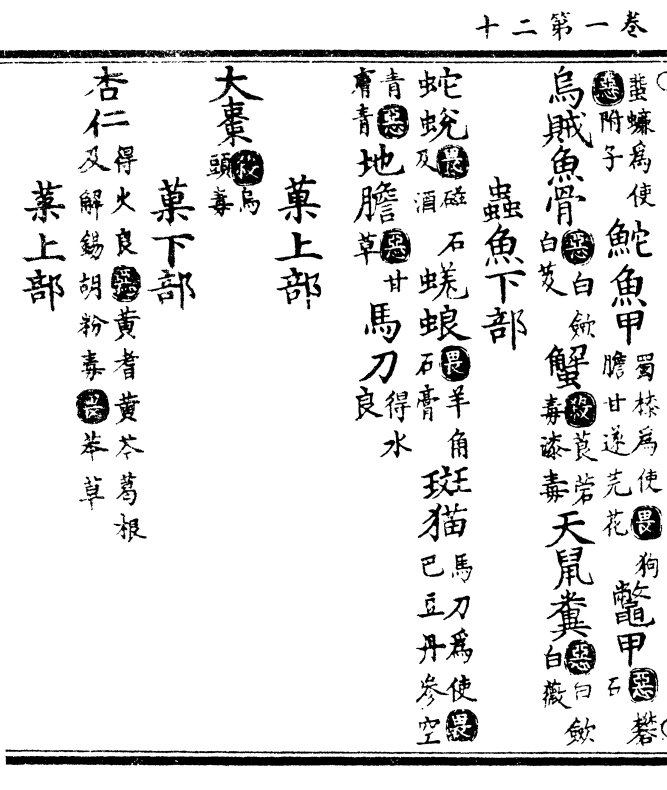 卷一第二十
蜚蠊為使惡附子鮀魚甲蜀漆為使畏狗膽甘遂芫花鱉甲惡礬石
烏賊魚骨惡白歛白芨蟹殺莨菪毒漆毒天鼠糞惡白歛白薇
蟲魚下部
蛇蛻畏磁石及酒蜣蜋畏羊角石膏斑猫馬刀為使畏巴豆丹參空
青惡膚青地膽惡甘草馬刀得水良
菓上部
大棗殺烏頭毒
菓下部
杏仁得火良惡黃耆黃芩葛根及解錫胡粉毒畏苯草
菜上部